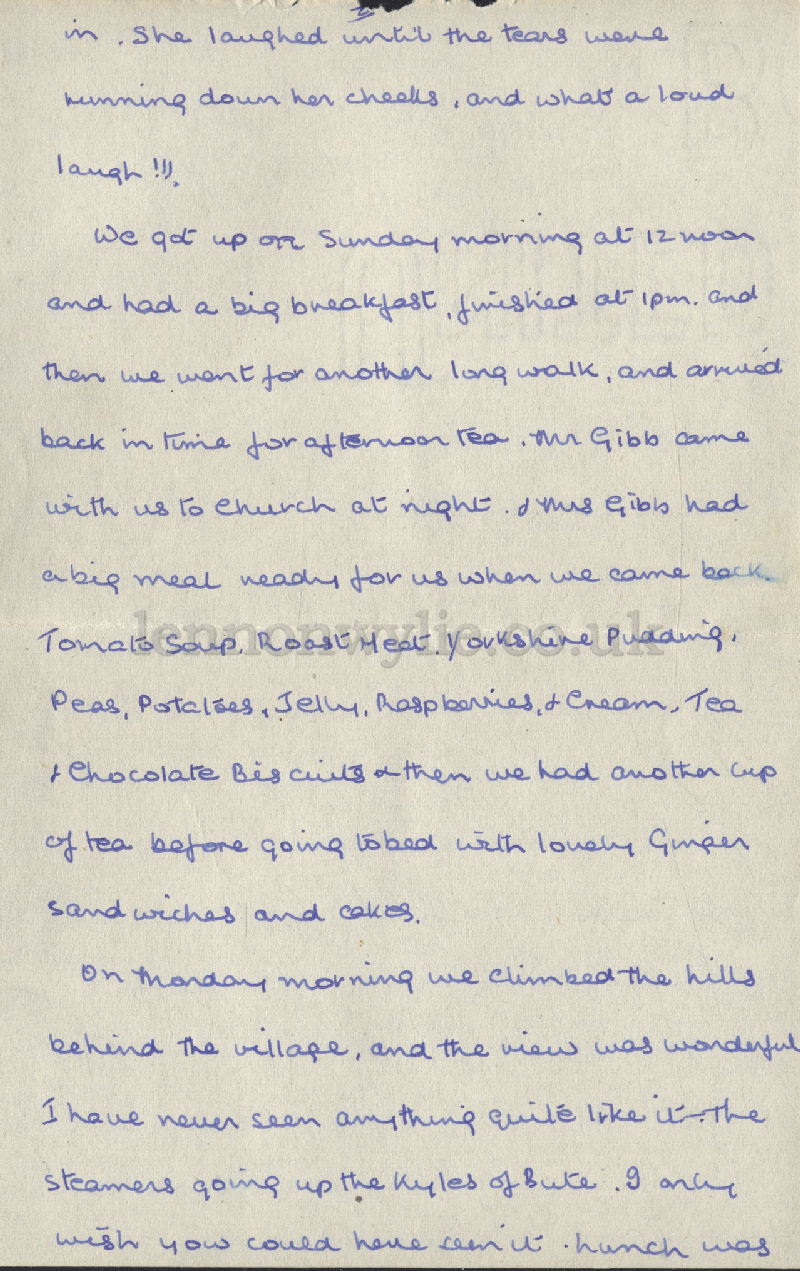 in. She laughed until the tears were
running down her cheeks, and what a loud
laugh !!!.
We got up on Sunday morning at 12 noon
and had a big breakfast, finished at 1pm. and
then we went for another long walk, and arrived
back in time for afternoon tea. Mr Gibb came
with us to Church at night. & Mrs Gibb had
a big meal ready for us when we came back.
lennonwylie.co.uk
Tomato Soup. Roast Meat. Yorkshire Pudding.
Peas, Potatoes, Jelly, Raspberries, & Cream, Tea
& Chocolate Biscuits & then we had another cup
of tea before going to bed with lovely Ginger
sandwiches and cakes.
On Monday morning we climbed the hills
behind the village, and the view was wonderful
I have never seen anything quite like it - The
steamers going up the Kyles of Bute. I only
wish you could have seen it. Lunch was